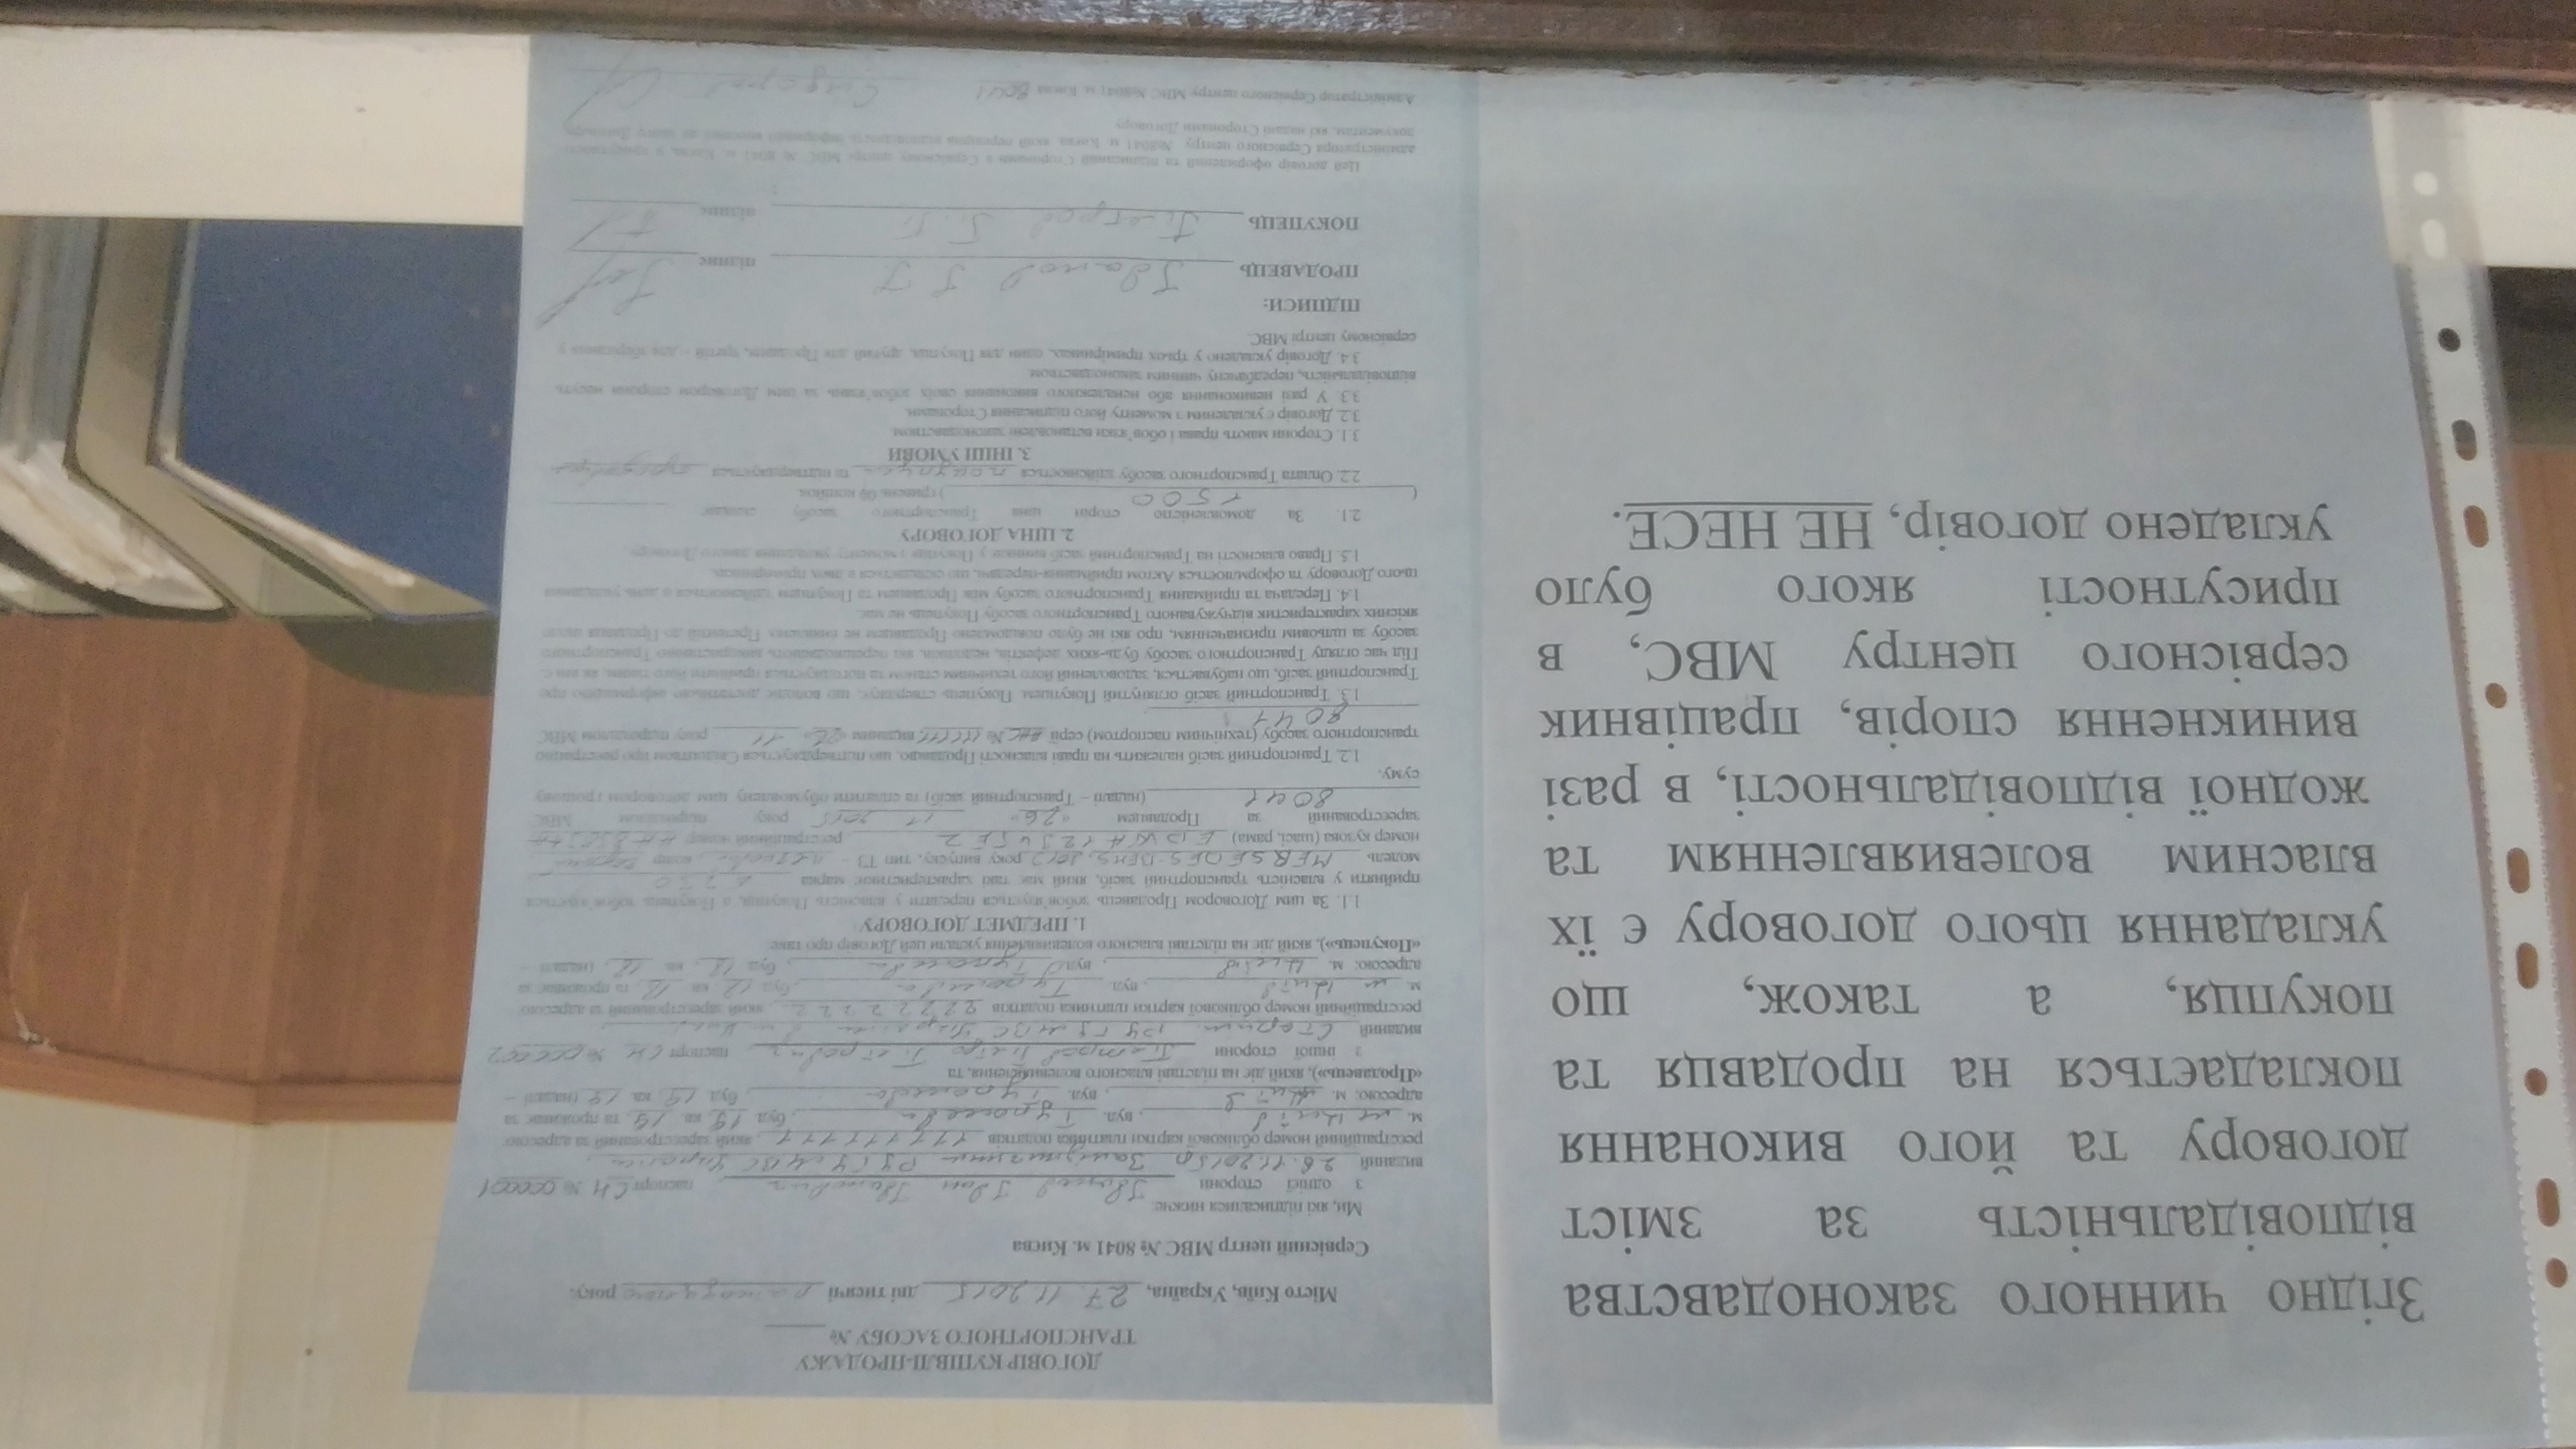 Згідно чинного законодавства
відповідальність за зміст
договору та його виконання
покладається на продавця та
покупця, а також, що
укладання цього договору є їх
власним волевиявленням та
жодної відповідальності, в разі
виникнення спорів, працівник
сервісного центру МВС, в
присутності якого було
укладено договір, НЕ НЕСЕ.
ДОГОВІР КУПІВЛІ-ПРОДАЖУ
ТРАНСПОРТНОГО ЗАСОБУ №
Місто Київ, Україна, 27.11.2015 дві тисячі року.
Сервісний центр МВС № 8041 м. Києва
Ми, які підписалися нижче:
з однієї сторони Іванов Іван Іванович паспорт СН № 000001
виданий 26.11.2015р РУ ГУ МВС України
реєстраційний номер облікової картки платника податків який зареєстрований за адресою:
м. Київ, вул. буд. 19 кв. 19 та проживає за
адресою: м. Київ, вул. буд. 19 кв. 19 (надалі –
«Продавець»), який діє на підставі власного волевиявлення, та
з іншої сторони Петров Петро Петрович паспорт СН № 000002
виданий РУ ГУ МВС України
реєстраційний номер облікової картки платника податків який зареєстрований за адресою:
м. Київ, вул. буд. 12 кв. 12 та проживає за
адресою: м. Київ, вул. буд. 12 кв. 12 (надалі –
«Покупець»), який діє на підставі власного волевиявлення уклали цей Договір про таке:
1. ПРЕДМЕТ ДОГОВОРУ
1.1. За цим Договором Продавець зобов'язується передати у власність Покупця, а Покупець зобов'язується
прийняти у власність транспортний засіб, який має такі характеристики: марка
модель року випуску, тип ТЗ – колір
номер кузова (шасі, рама) реєстраційний номер
зареєстрований за Продавцем «26» 11 2015 року підрозділом МВС
8041 (надалі – Транспортний засіб) та сплатити обумовлену цим договором грошову
суму.
1.2. Транспортний засіб належить на праві власності Продавцю, що підтверджується Свідоцтвом про реєстрацію
транспортного засобу (технічним паспортом) серії № виданим «26» 11 року підрозділом МВС
8041
1.3. Транспортний засіб оглянутий Покупцем. Покупець стверджує, що володіє достатньою інформацією про
Транспортний засіб, що набувається, задоволений його технічним станом та погоджується прийняти його таким, як він є.
Під час огляду Транспортного засобу будь-яких дефектів, недоліків, які перешкоджають використанню Транспортного
засобу за цільовим призначенням, про які не було повідомлено Продавцем не виявлено. Претензій до Продавця щодо
якісних характеристик відчужуваного Транспортного засобу Покупець не має.
1.4. Передача та приймання Транспортного засобу між Продавцем та Покупцем здійснюється в день укладання
цього Договору та оформлюється Актом приймання-передачі, що складається в двох примірниках.
1.5. Право власності на Транспортний засіб виникає у Покупця з моменту укладання даного Договору.
2. ЦІНА ДОГОВОРУ
2.1. За домовленістю сторін ціна Транспортного засобу складає
( 1500 ) гривень 00 копійок
2.2. Оплата Транспортного засобу здійснюється покупцем та підтверджується продавцем
3. ІНШІ УМОВИ
3.1. Сторони мають права і обов'язки встановлені законодавством.
3.2. Договір є укладеним з моменту його підписання Сторонами.
3.3. У разі невиконання або неналежного виконання своїх зобов'язань за цим Договором сторони несуть
відповідальність, передбачену чинним законодавством.
3.4. Договір укладено у трьох примірниках, один для Покупця, другий для Продавця, третій – для зберігання у
сервісному центрі МВС.
ПІДПИСИ:
ПРОДАВЕЦЬ Іванов І І підпис
ПОКУПЕЦЬ Петров П. П. підпис
Цей договір оформлений та підписаний Сторонами в Сервісному центрі МВС № 8041 м. Києва, в присутності
адміністратора Сервісного центру №8041 м. Києва, який перевірив відповідність інформації внесеної до цього Договору
документам, які надані Сторонами Договору.
Адміністратор Сервісного центру МВС №8041 м. Києва 8041 Сидоров